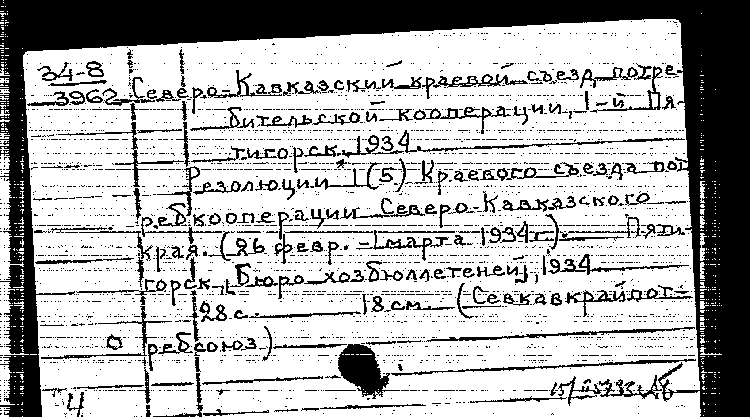 34-8
3962
Северо-Кавказский краевой съезд потре-
бительской кооперации, 1-й. Пя-
тигорск, 1934.
Резолюции 1(5) Краевого съезда пот-
ребкооперации Северо-Кавказского
края. (26 февр. - 1 марта 1934 г.). Пяти-
горск, [Бюро хозбюллетеней], 1934
28 с. 18 см. (Севкавкрайпот-
ребсоюз)
Ч